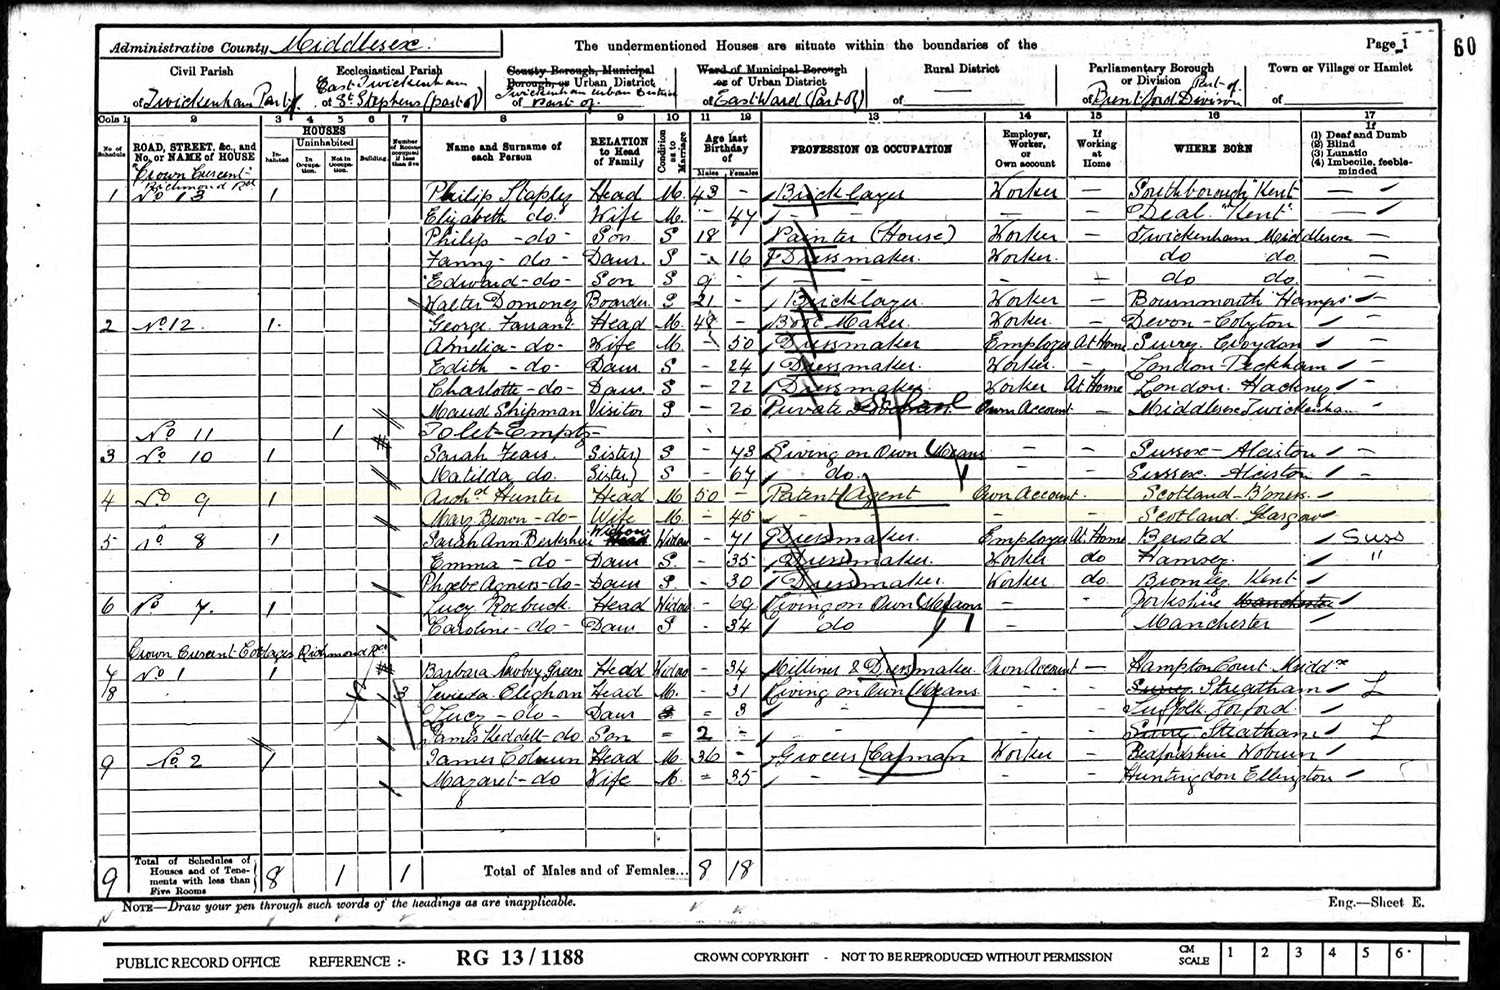 Administrative County Middlesex.
The undermentioned Houses are situate within the boundaries of the
Page 1
60
Civil Parish
of Twickenham Part of
Ecclesiastical Parish
East Twickenham
of St Stephens (part of)
County Borough, Municipal
Borough, or Urban District
Twickenham Urban District
of Part of.
Ward of Municipal Borough
or of Urban District
of East Ward (Part of)
Rural District
of
Parliamentary Borough
or Division Part of.
of Brentford Division
Town or Village or Hamlet
of
Cols 1 2 3 4 5 6 7 8 9 10 11 12 13 14 15 16 17
No of Schedule
ROAD, STREET, &c., and No. or NAME of HOUSE
HOUSES
Inhabited
Uninhabited
In Occupation.
Not in Occupation.
Building.
Number of Rooms occupied if less than five
Name and Surname of each Person
RELATION to Head of Family
Condition as to Marriage
Age last Birthday of
Males Females
PROFESSION OR OCCUPATION
Employer, Worker, or Own account
If Working at Home
WHERE BORN
If
(1) Deaf and Dumb
(2) Blind
(3) Lunatic
(4) Imbecile, feeble-minded
Crown Crescent
Richmond Rd
1 No 13 1 Philip Stapley Head M. 43 - Bricklayer Worker - Southborough "Kent"
Elizabeth do. Wife M. - 47 - - - Deal. "Kent"
Philip - do - Son S 18 Painter (House) Worker - Twickenham Middlesex
Fanny - do - Daur. S - 16 Dressmaker. Worker. do do.
Edward - do - Son S 9 - - - do do.
Walter Domoney Boarder. S 21 - Bricklayer Worker - Bournmouth Hamps
2 No 12. 1. George Farrant Head M. 48 - Boot Maker. Worker. - Devon - Colyton
Amelia - do - Wife M. - 50 Dressmaker Employer At Home Surrey Croydon
Edith - do - Daur S - 24 Dressmaker. Worker. - London - Peckham
Charlotte - do - Daur S - 22 Dressmaker. Worker At Home London. Hackney
Maud Shipman Visitor S - 20 Private School Own Account - Middlesex Twickenham
No 11 1 To let - Empty -
3 No 10 1 Sarah Fears. Sister S - 73 Living on Own Means - - Sussex - Alciston
Matilda do. Sister S - 67 do. - - Sussex. Alciston
4 No 9 1 Archd Hunter Head M 50 - Patent Agent Own Account. Scotland - B'ness.
Mary Brown - do - Wife M. - 45 - - Scotland. Glasgow
5 No. 8 1 Sarah Ann Berkshire Widow Head Widow - 71 Dressmaker. Employer At Home Bersted Suss
Emma - do - Daur S. - 35 Dressmaker. Worker do Hamsey. "
Phoebe Agness - do - Daur S. - 30 Dressmaker. Worker do. Bromley Kent
6 No. 7. 1 Lucy Roebuck. Head Widow - 69 Living on Own Means - - Yorkshire Manchester
Caroline - do - Daur S - 34 do - Manchester
Crown Crescent Cottages Richmond Rd
7 No 1 1 Barbara Newbey Green Head Widow - 34 Milliner & Dressmaker. Own Account - Hampton Court Middx
8 3 Cleghorn Head M. - 31 Living on Own Means. - - Surrey Streatham L
Lucy - do - Daur S - 3 - - Suffolk.
James Keddell - do Son - 2 - - - Surrey Streatham L
9 No. 2 1 James Head M. 36 - Grocers Carman Worker - Bedfordshire Woburn
Margaret - do Wife M. - 35 - - - - Huntingdon Ellington
9 Total of Schedules of Houses and of Tenements with less than Five Rooms 8 1 1 Total of Males and of Females... 8 18
NOTE—Draw your pen through such words of the headings as are inapplicable.
Eng.—Sheet E.
PUBLIC RECORD OFFICE REFERENCE :- RG 13/1188 CROWN COPYRIGHT - NOT TO BE REPRODUCED WITHOUT PERMISSION CM SCALE 1 2 3 4 5 6